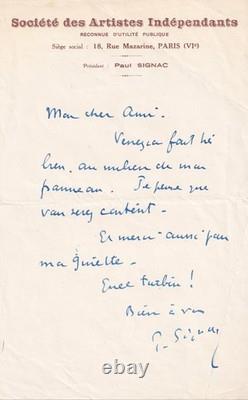 Société des Artistes Indépendants
RECONNUE D'UTILITÉ PUBLIQUE
Siège social : 18, Rue Mazarine, PARIS (VIe)
Président : Paul SIGNAC
Mon cher Ami.
Venezia fait très
bien, au milieu de mon
panneau. Je pense que
vous serez content.
Et merci aussi pour
ma
Quel turbin !
Bien à vous
P. Signac
ebay.com